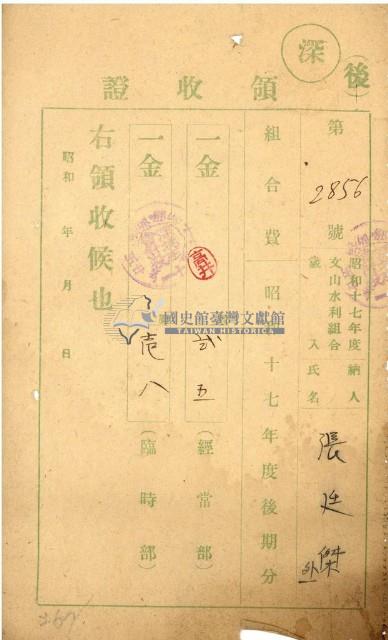 後
深
領收證
第2856號
昭和十七年度納人
文山水利組合
歲入氏名
張廷傑
外
組合費 昭和十七年度後期分
一金 貳五 (經常部)
一金 壱八 (臨時部)
右領收候也
昭和 年 月 日
高井
國史館臺灣文獻館
TAIWAN HISTORICA